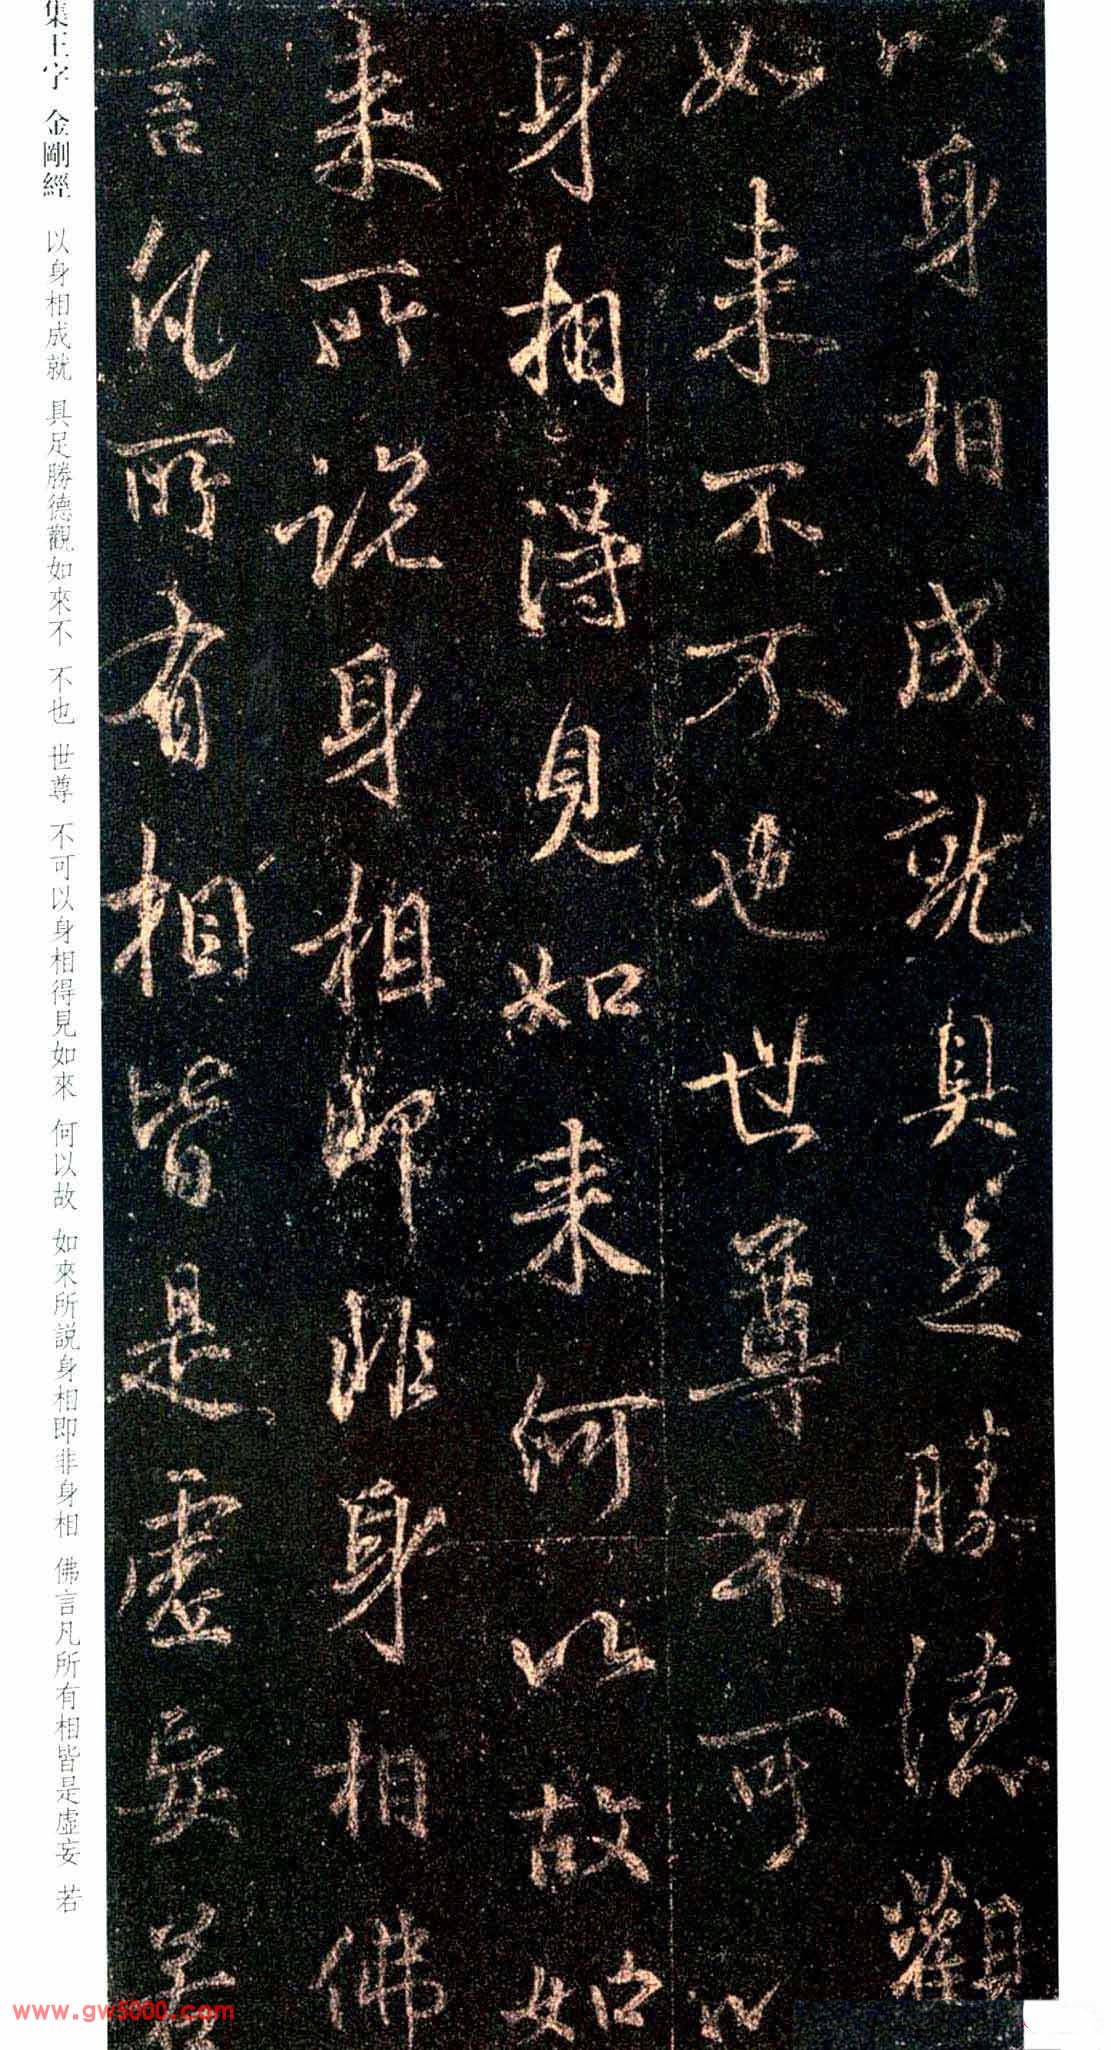 以身相成就具足勝德觀
如來不不也世尊不可以
身相得見如來何以故如
來所說身相即非身相佛
言凡所有相皆是虛妄若
集王字 金剛經 以身相成就 具足勝德觀如來不 不也 世尊 不可以身相得見如來 何以故 如來所説身相即非身相 佛言凡所有相皆是虛妄 若
www.gw5000.com